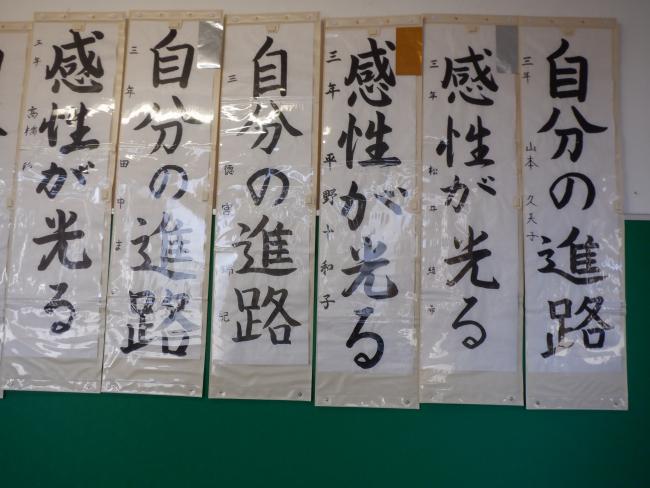 自分の進路
三年 山本 久天子
感性が光る
三年 松
感性が光る
三年 平野 十和子
自分の進路
三
自分の進路
三年 田中
感性が光る
三年 高橋